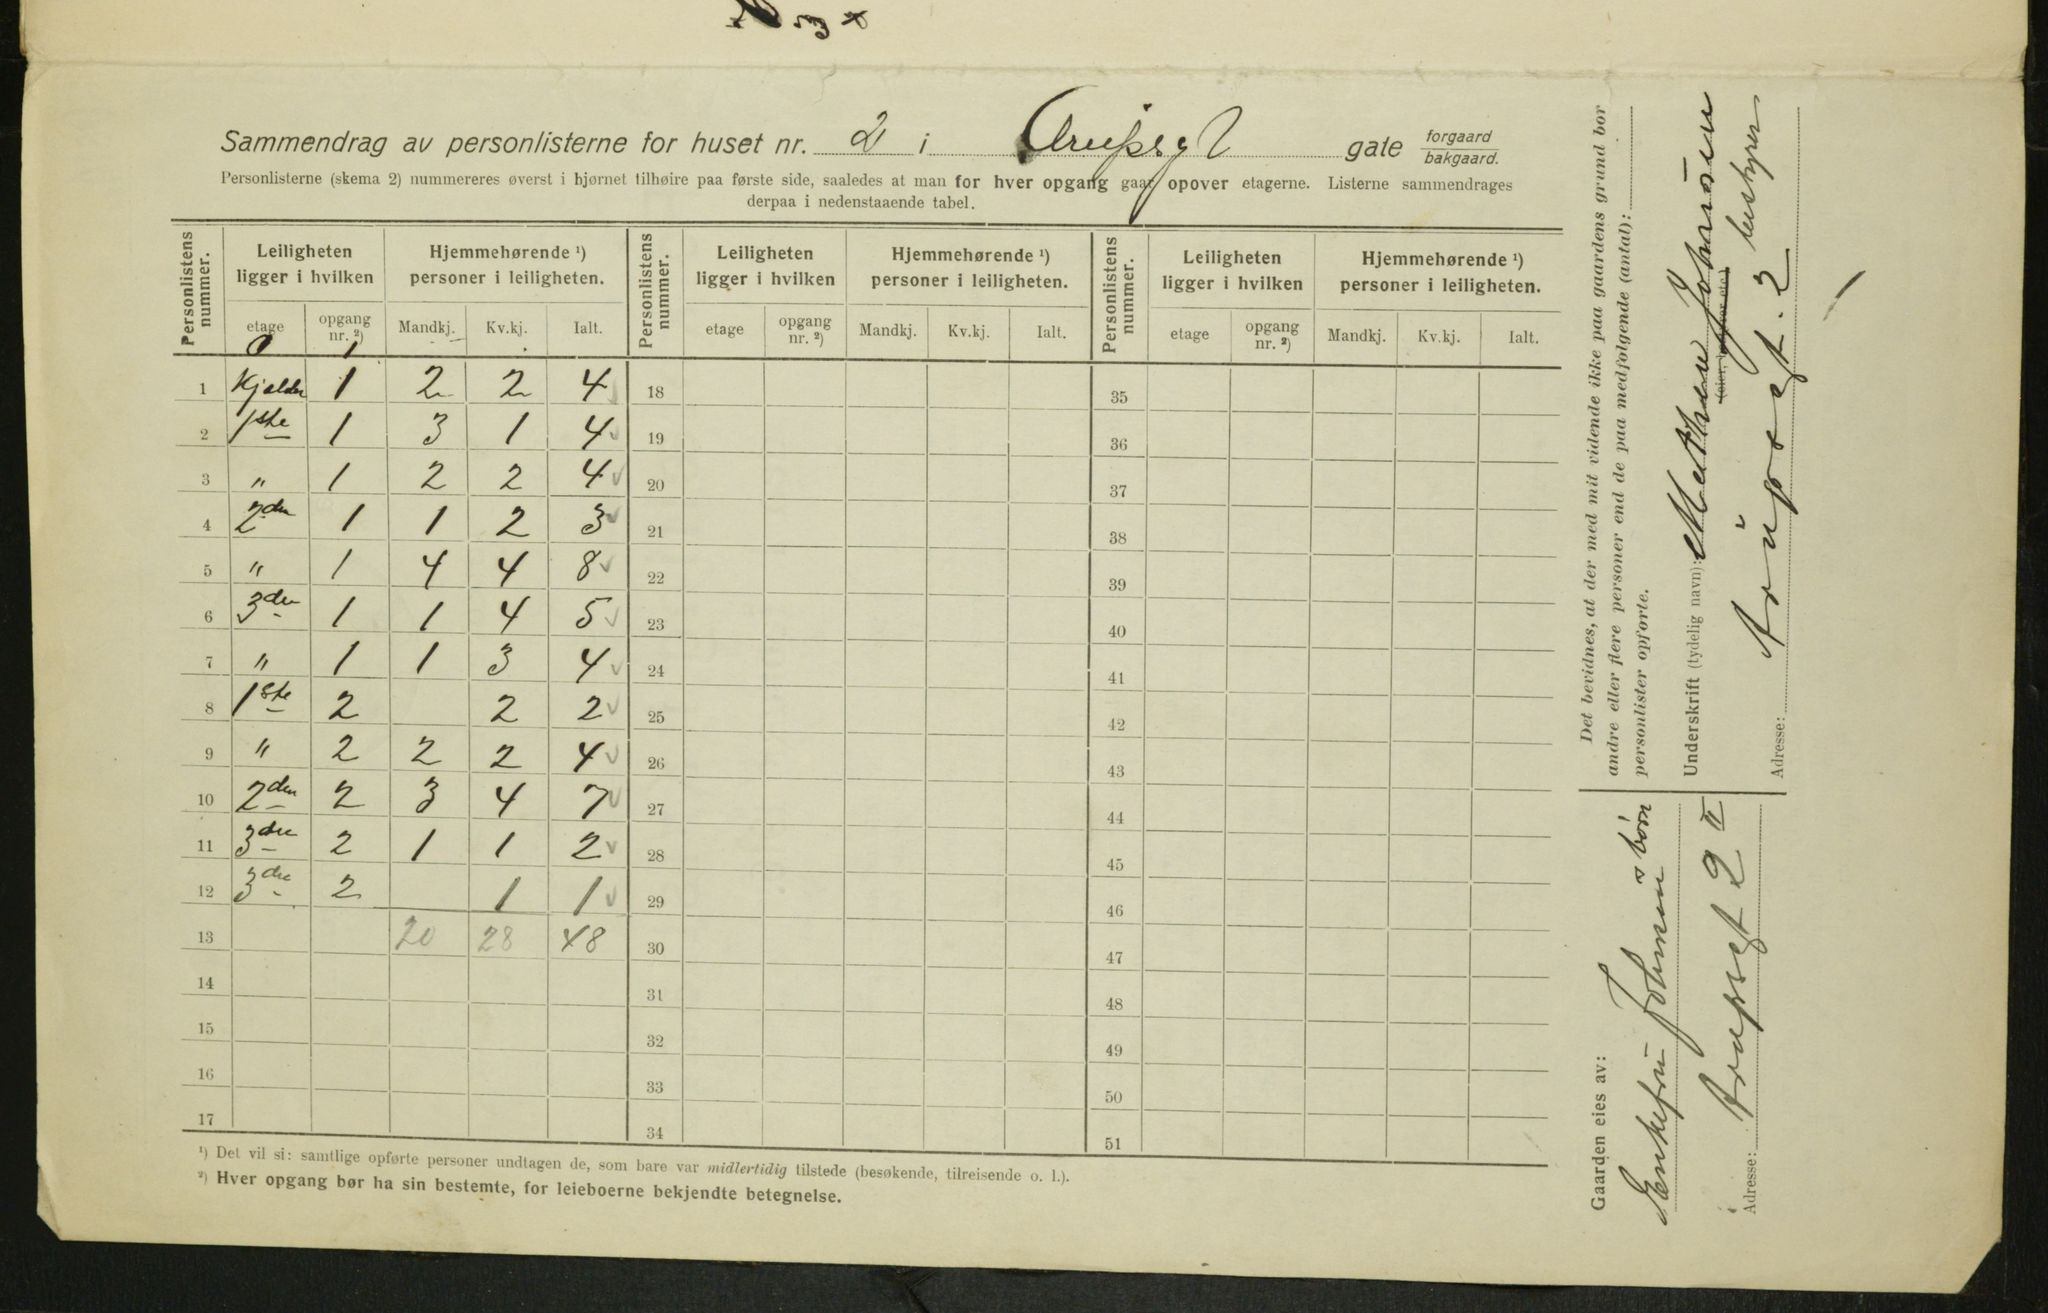 Sammendrag av personlisterne for huset nr. 2 i Arupsgt gate forgaard bakgaard.
Personlisterne (skema 2) nummereres øverst i hjørnet tilhøire paa første side, saaledes at man for hver opgang gaar opover etagerne. Listerne sammendrages
derpaa i nedenstaaende tabel.
Personlistens nummer. Leiligheten ligger i hvilken Hjemmehørende ¹) personer i leiligheten. Personlistens nummer. Leiligheten ligger i hvilken Hjemmehørende ¹) personer i leiligheten. Personlistens nummer. Leiligheten ligger i hvilken Hjemmehørende ¹) personer i leiligheten.
etage opgang nr. ²) Mandkj. Kv.kj. Ialt. etage opgang nr. ²) Mandkj. Kv.kj. Ialt. etage opgang nr. ²) Mandkj. Kv.kj. Ialt.
0 1
1 Kjelder 1 2 2 4 18 35
2 1ste 1 3 1 4 19 36
3 " 1 2 2 4 20 37
4 2den 1 1 2 3 21 38
5 " 1 4 4 8 22 39
6 3die 1 1 4 5 23 40
7 " 1 1 3 4 24 41
8 1ste 2 2 2 25 42
9 " 2 2 2 4 26 43
10 2den 2 3 4 7 27 44
11 3die 2 1 1 2 28 45
12 3die 2 1 1 29 46
13 20 28 48 30 47
14 31 48
15 32 49
16 33 50
17 34 51
¹) Det vil si: samtlige opførte personer undtagen de, som bare var midlertidig tilstede (besøkende, tilreisende o. l.).
²) Hver opgang bør ha sin bestemte, for leieboerne bekjendte betegnelse.
Det bevidnes, at der med mit vidende ikke paa gaardens grund bor
andre eller flere personer end de paa medfølgende (antal):
personlister opførte.
Underskrift (tydelig navn): Mathea Johnsen
bestyrer
Adresse: Arupsgt. 2
Gaarden eies av:
Enkefru Johnsen's børn
Adresse: Arupsgt 2 II